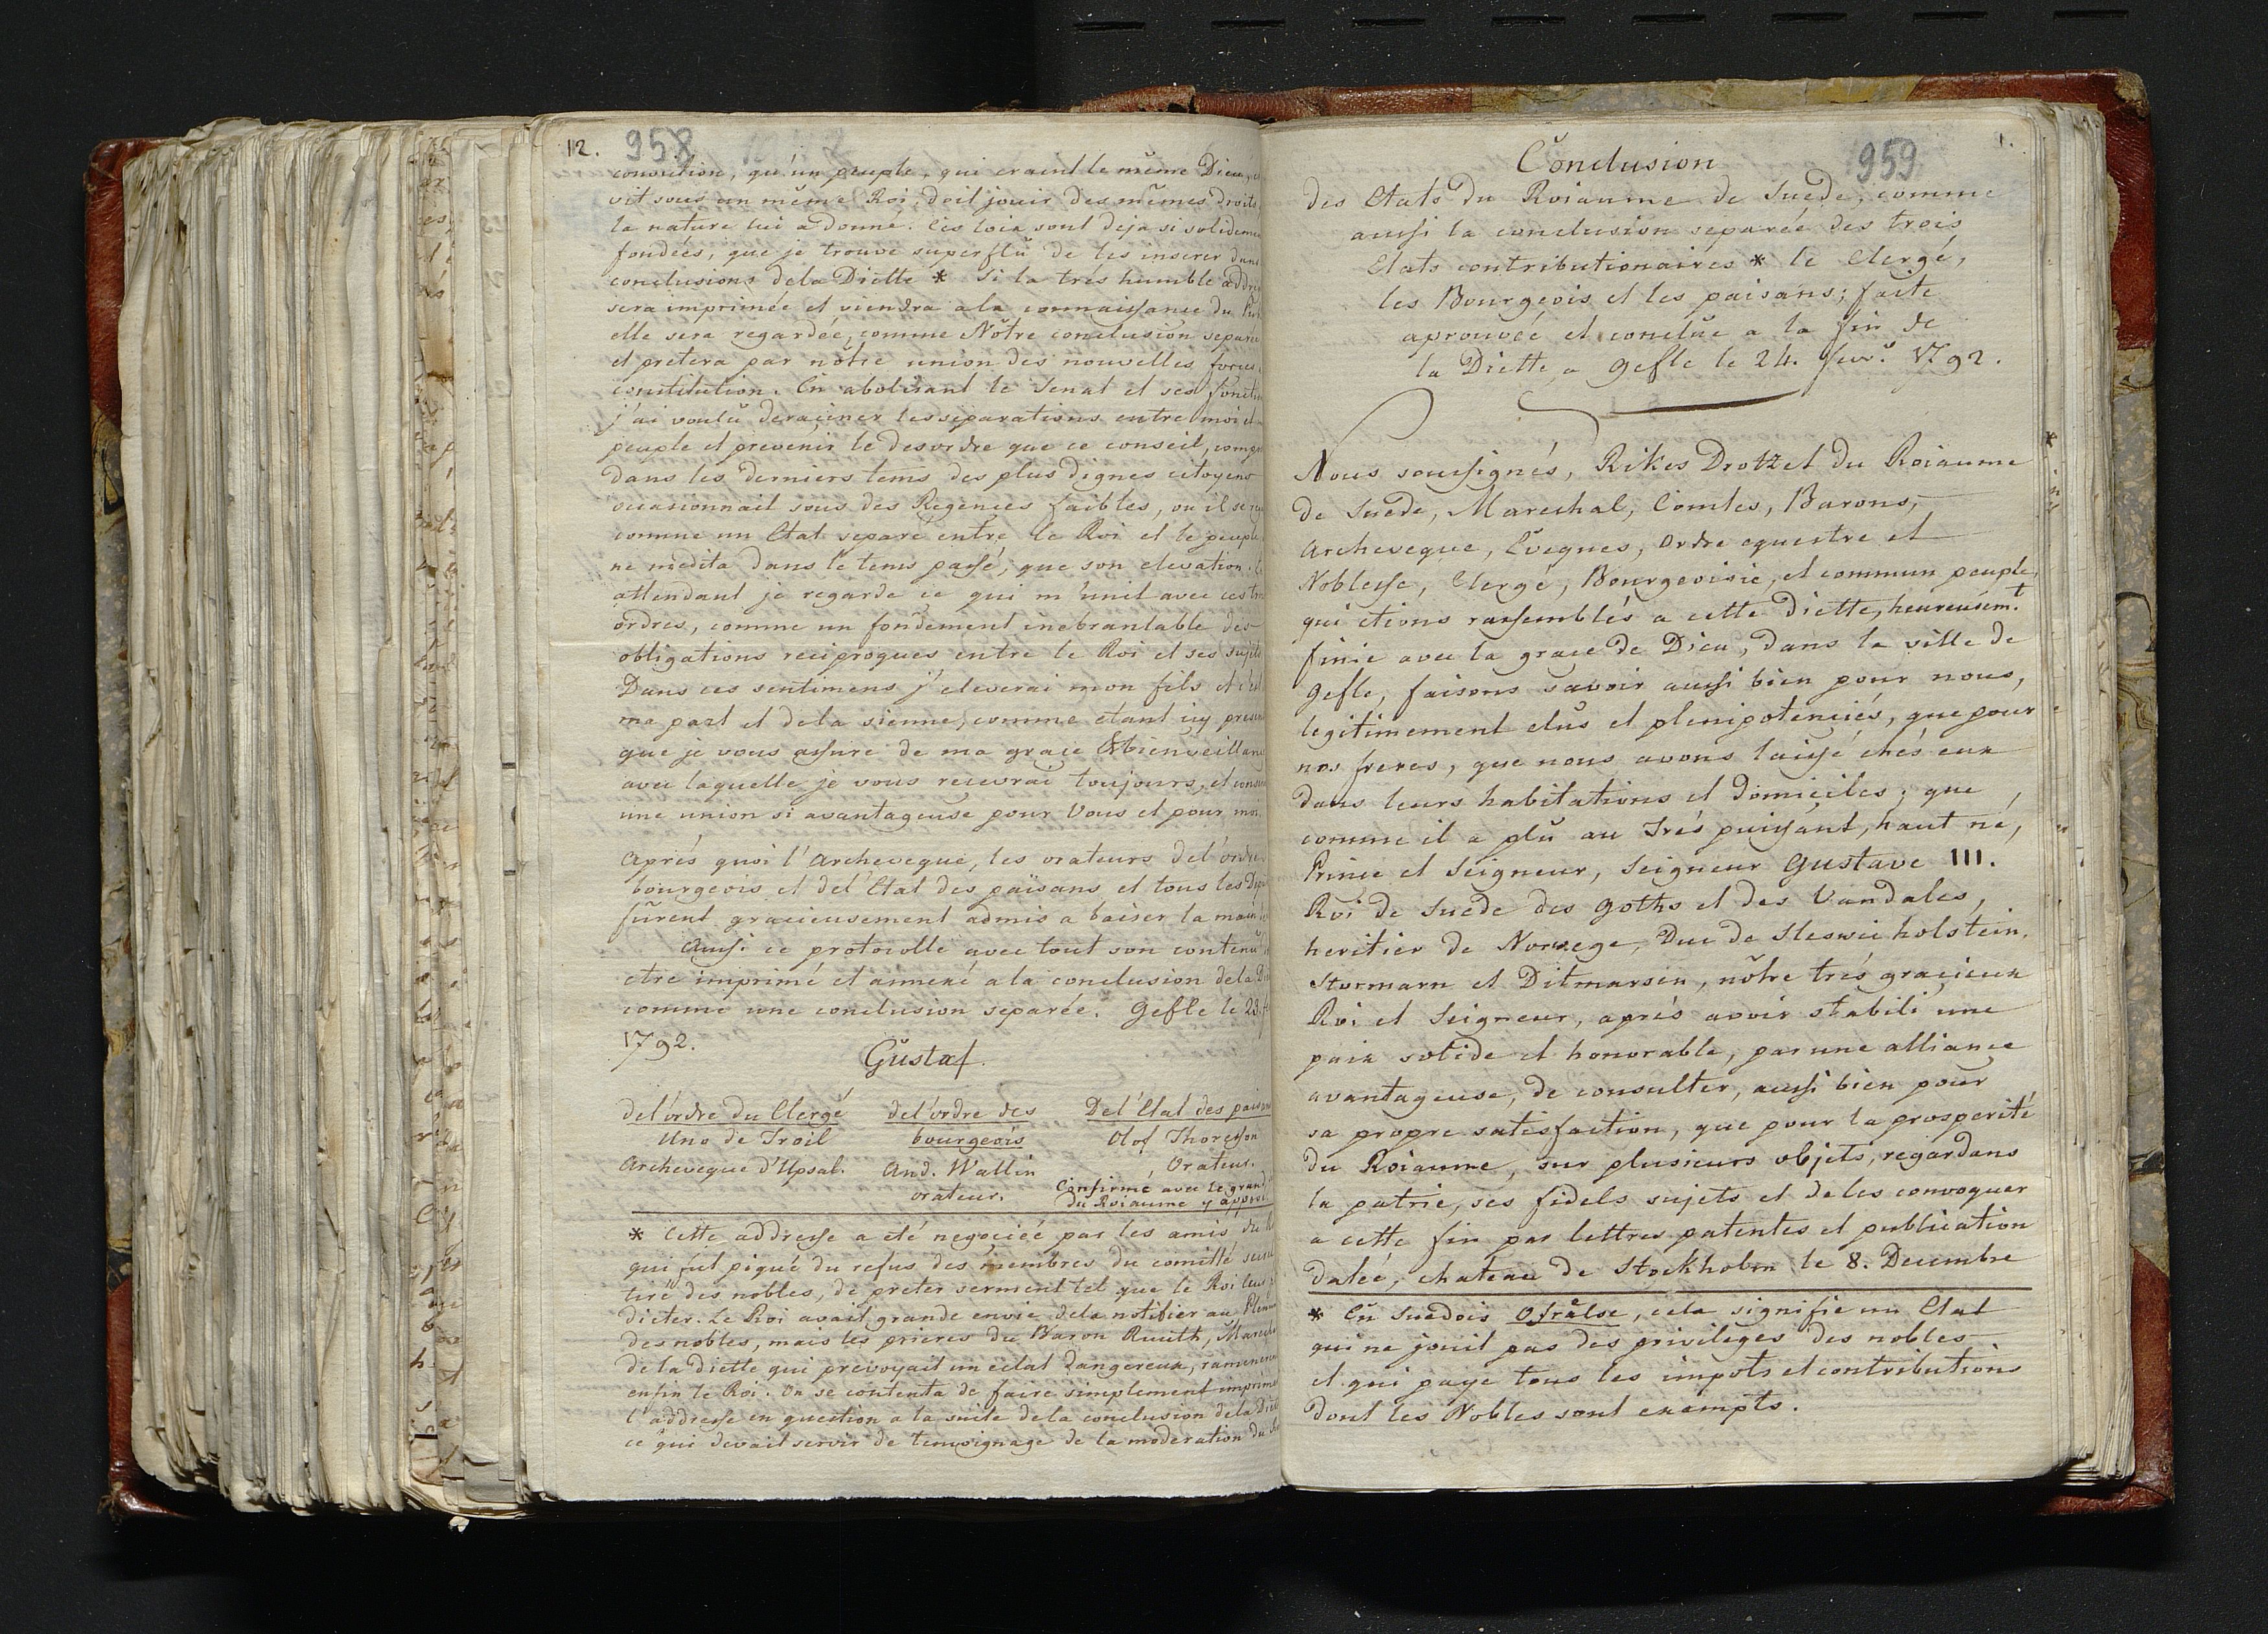 12. 958
conviction, qu'un peuple, qui craint le même Dieu, et
vit sous un même Roi, doit jouir des mêmes droits,
la nature lui a donné. Ces loix sont deja si solideme
fondées, que je trouve superflû de les inserer dans
conclusions dela Diette * Si la trés humble addre
sera imprimée et viendra a la connaissance du Pub
elle sera regardée, comme Nôtre conclusion separée
et pretera par nôtre union des nouvelles forces
constitution. En abolisant le Senat et ses fonctio
j'ai voulû deraciner les separations entre moi et
peuple et prevenir le desordre que ce conseil, compo
dans les derniers tems des plus dignes citoyens
occasionnait sous des Regences faibles, ou il se re
comme un Etat separé entre le Roi et le peuple
ne medita dans le tems passé, que son elevation.
attendant je regarde ce qui m'unit avec ces tr
ordres, comme un fondement inebranlable des
obligations reciproques entre le Roi et ses sujets
Dans ces sentimens j'eleverai mon fils et c'est
ma part et dela sienne, comme etant icy presen
que je vous assure de ma grace & bienveillanc
avec laquelle je vous recevrai toujours, et conser
une union si avantageuse pour Vous et pour moi.
Aprés quoi l'Archeveque, les orateurs del'ordre
bourgeois et del'Etat des païsans et tous les Dep
fûrent gracieusement admis a baiser la main
Aussi ce protocolle avec tout son contenû
etre imprimé et annexé a la conclusion dela Di
comme une conclusion separée. Gefle le 23. f
1792.
Gustaf.
del'ordre du Clergé
Uno de Troil
Archeveque d'Upsal.
del'ordre des
bourgeois
And. Wallin
orateur.
Del'Etat des paisans
Olof Thoresson
Orateur.
Confirmé avec le grand
du Roiaume y apposé
* Cette addresse a été negociée par les amis du R
qui fut piqué du refus des membres du comitté secret
tiré des nobles, de preter serment tel que le Roi leur
dicter. Le Roi avait grande envie dela notifier au Plenum
des nobles, mais les prieres du Baron Ruuth, Marecha
de la diette qui prevoyait un éclat dangereux, ramenere
enfin le Roi. On se contenta de faire simplement imprime
l'addresse en question a la suite dela conclusion dela Diette
ce qui devait servir de temoignage de la moderation du
959 1.
Conclusion
des Etats du Roiaume de Suede, comme
aussi la conclusion separée des trois
Etats contributionaires * le Clergé,
les Bourgeois et les paisans; faite
aprouvée et conclue a la fin de
la Diette, a Gefle le 24. fevr. 1792.
Nous soussignés, Rikes Drotzet du Roiaume
de Suede, Marechal, Comtes, Barons,
Archeveque, Eveques, Ordre equestre et
Noblesse, Clergé, Bourgeoisie, et commun peuple,
qui etions rassemblés a cette diette, heureusemt.
finie avec la grace de Dieu, dans la ville de
Gefle, faisons savoir aussi bien pour nous,
legitimement elus et plenipotenciés, que pour
nos freres, que nous avons laissé chés eux
dans leurs habitations et domiciles; que,
comme il a plû au Trés puissant, haut né,
Prince et Seigneur, Seigneur Gustave III.
Roi de Suede des Goths et des Vandales,
heritier de Norwege, Duc de Sleswic holstein.
Stormarn et Ditmarsen, nôtre trés gracieux
Roi et Seigneur, aprés avoir stabili une
paix solide et honorable, par une alliance
avantageuse, de consulter, aussi bien pour
sa propre satisfaction, que pour la prosperité
du Roiaume, sur plusieurs objets, regardans
la patrie, ses fidels sujets et de les convoquer
a cette fin par lettres patentes et publication
datée, chateau de Stockholm le 8. Decembre
* En suedois Ofrälse, cela signifie un Etat
qui ne jouit pas des privileges des nobles
et qui paye tous les impots et contributions
dont les Nobles sont exempts.